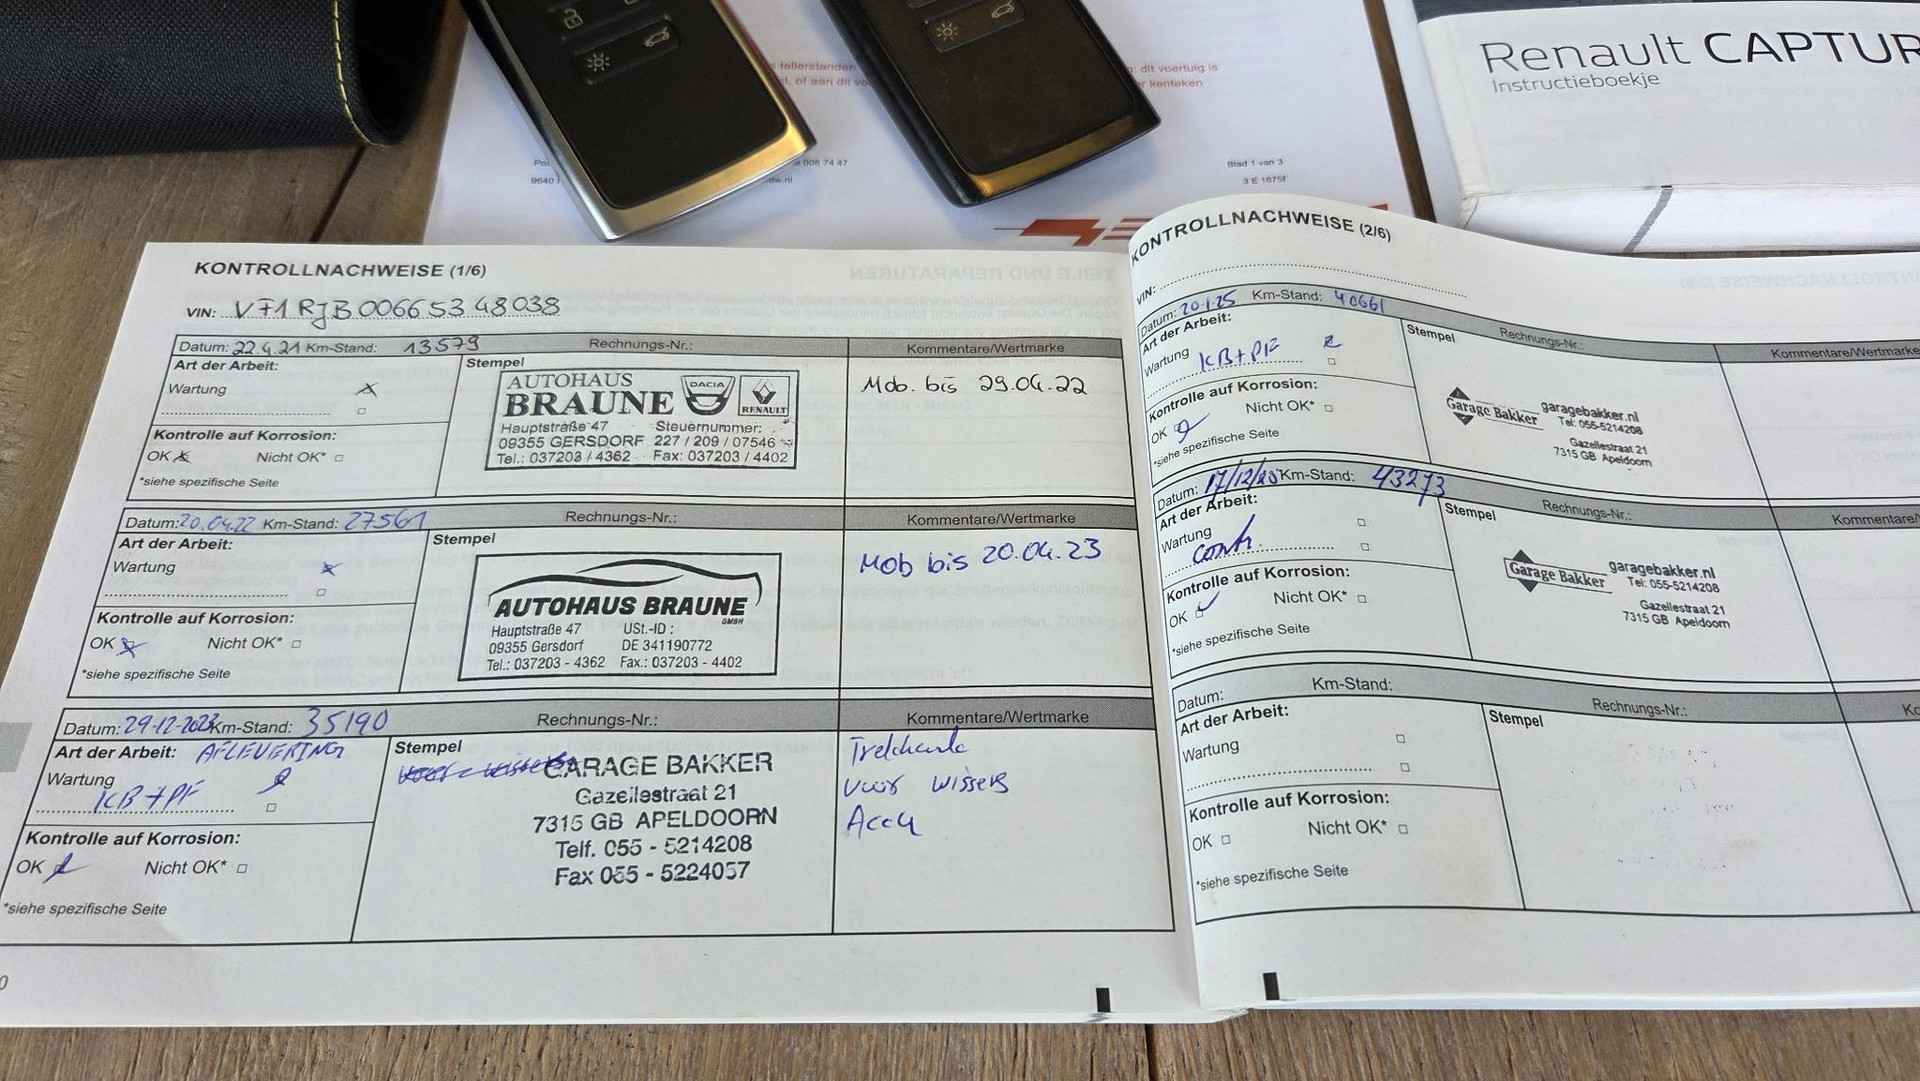 Renault CAPTUR
Instructieboekje
tellerstanden
dit voertuig is
of aan dit
kenteken
006 74 47
Blad 1 van 3
9640
dw.nl
KONTROLLNACHWEISE (1/6)
VIN: VF1RJB00665348038
Datum: 22.4.21 Km-Stand: 13579 Rechnungs-Nr.: Kommentare/Wertmarke
Art der Arbeit: Stempel
Wartung
Kontrolle auf Korrosion:
OK Nicht OK*
*siehe spezifische Seite
AUTOHAUS
BRAUNE
DACIA
RENAULT
Hauptstraße 47 Steuernummer:
09355 GERSDORF 227 / 209 / 07546
Tel.: 037203 / 4362 Fax: 037203 / 4402
Mob. bis 29.04.22
Datum: 20.04.22 Km-Stand: 27561 Rechnungs-Nr.: Kommentare/Wertmarke
Art der Arbeit: Stempel
Wartung
Kontrolle auf Korrosion:
OK Nicht OK*
*siehe spezifische Seite
AUTOHAUS BRAUNE
GMBH
Hauptstraße 47 USt.-ID :
09355 Gersdorf DE 341190772
Tel.: 037203 - 4362 Fax.: 037203 - 4402
Mob bis 20.04.23
Datum: 29-12-2023 Km-Stand: 35190 Rechnungs-Nr.: Kommentare/Wertmarke
Art der Arbeit: AFLEVERING Stempel
Wartung
KB + PF
Kontrolle auf Korrosion:
OK Nicht OK*
*siehe spezifische Seite
GARAGE BAKKER
Gazellestraat 21
7315 GB APELDOORN
Telf. 055 - 5214208
Fax 055 - 5224057
Trekhaak
voor wissers
Accu
KONTROLLNACHWEISE (2/6)
VIN:
Datum: 20.1.25 Km-Stand: 40661 Rechnungs-Nr.: Kommentare/Wertmarke
Art der Arbeit: Stempel
Wartung KB + PF
Kontrolle auf Korrosion:
OK Nicht OK*
*siehe spezifische Seite
Garage Bakker
garagebakker.nl
Tel: 055-5214208
Gazellestraat 21
7315 GB Apeldoorn
Datum: 17/12/25 Km-Stand: 43273 Rechnungs-Nr.:
Art der Arbeit: Stempel
Wartung
contr.
Kontrolle auf Korrosion:
OK Nicht OK*
*siehe spezifische Seite
Garage Bakker
garagebakker.nl
Tel: 055-5214208
Gazellestraat 21
7315 GB Apeldoorn
Datum: Km-Stand: Rechnungs-Nr.:
Art der Arbeit: Stempel
Wartung
Kontrolle auf Korrosion:
OK Nicht OK*
*siehe spezifische Seite